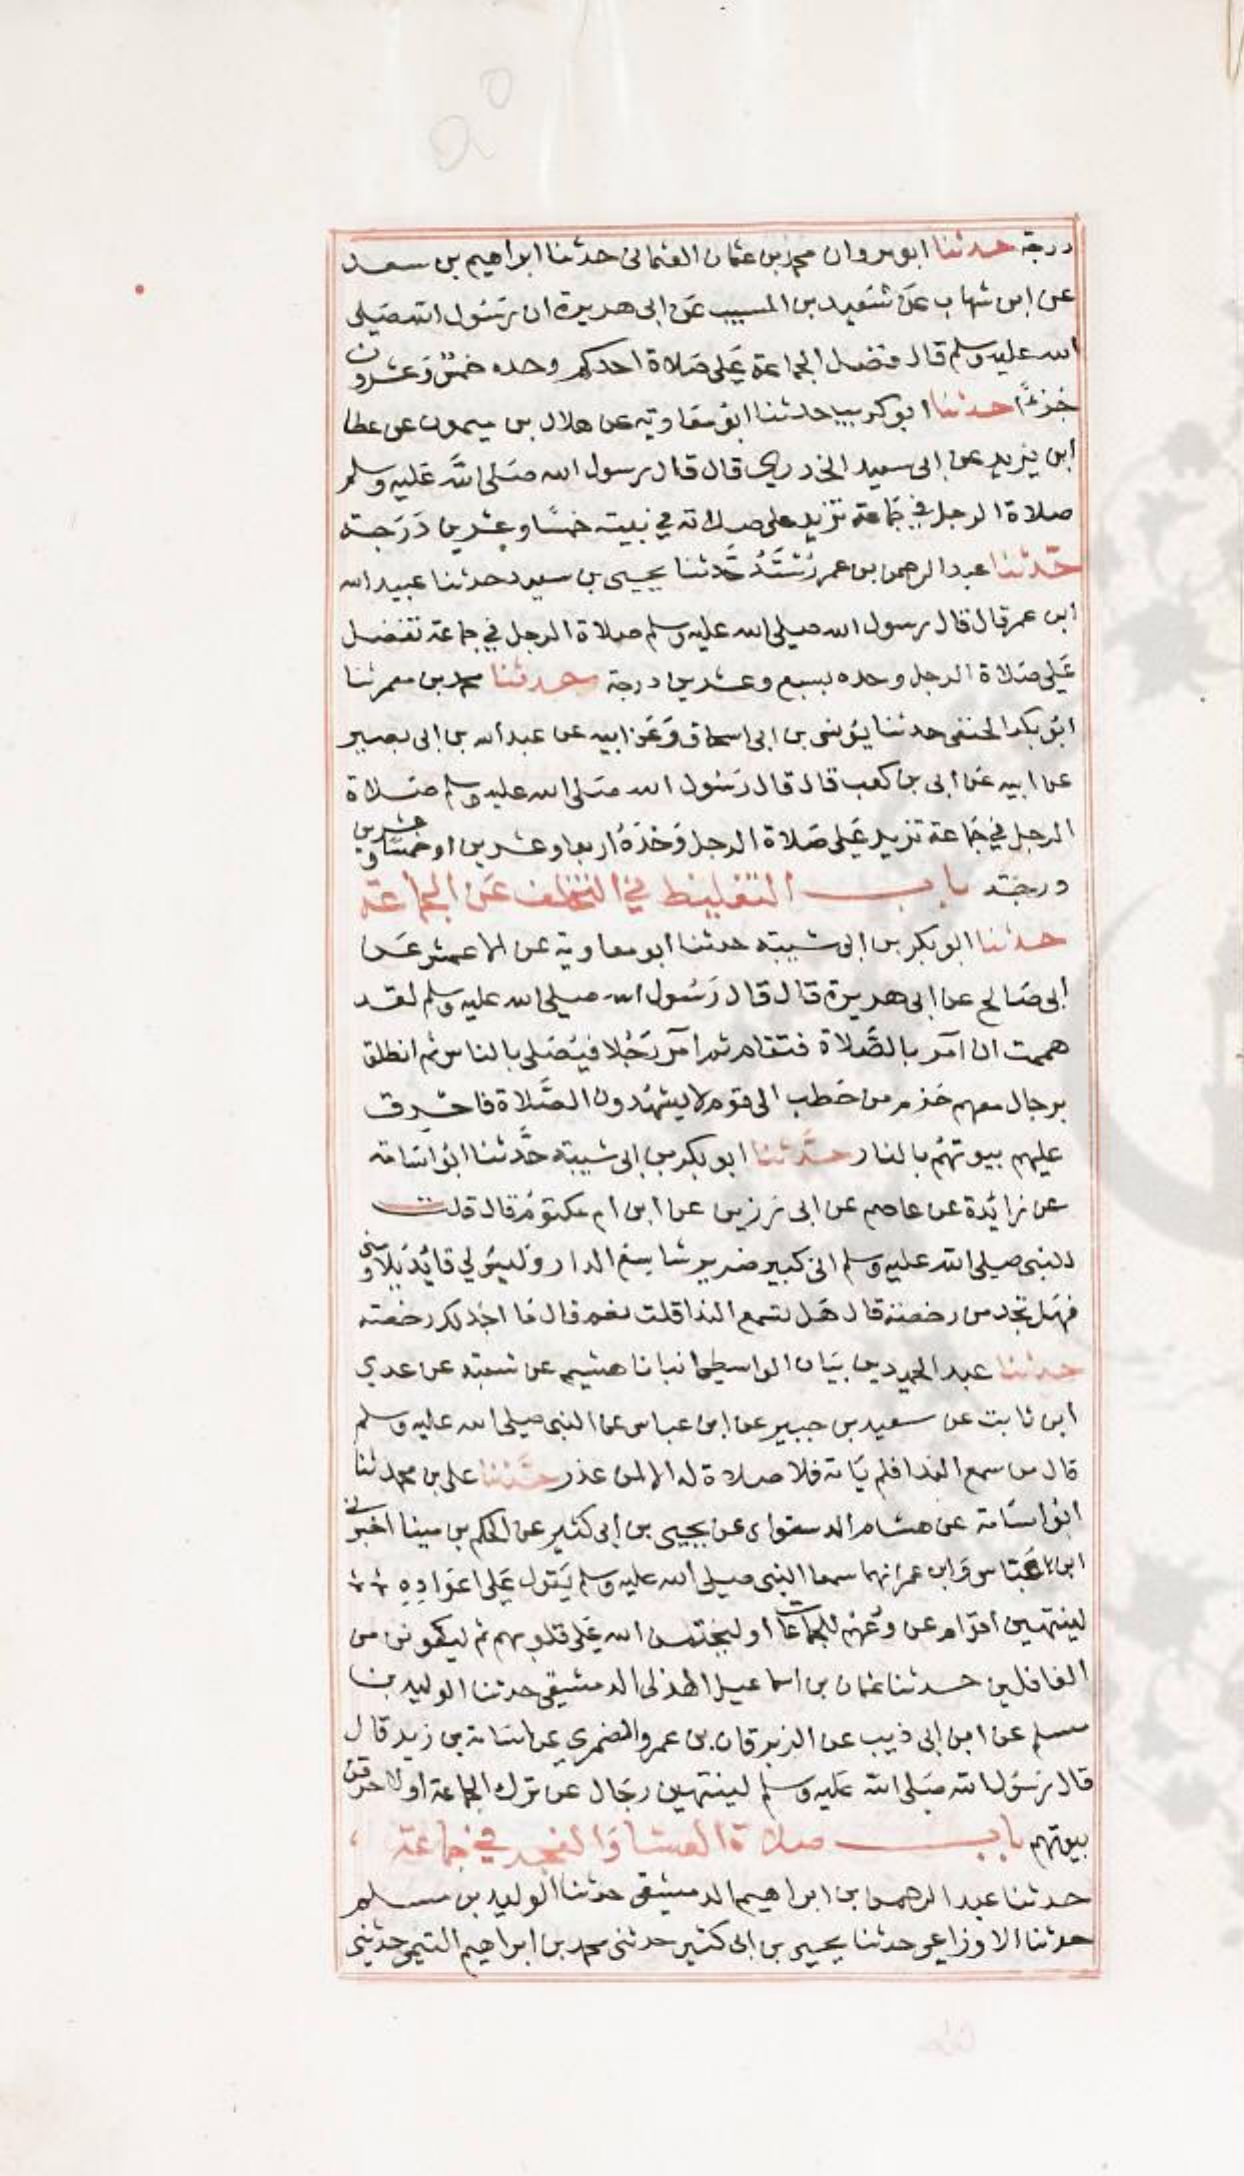 درجة حدثنا ابو مروان محمد بن عثمان العثماني حدثنا ابراهيم بن سعد
عن ابن شهاب عن سعيد بن المسيب عن ابى هريرة ان رسول الله صلى
الله عليه وسلم قال فضل الجماعة على صلاة احدكم وحده خمس وعشرون
جزءًا حدثنا ابو كريب حدثنا ابو معاوية عن هلال بن ميمون عن عطا
ابن يزيد عن ابى سعيد الخدري قال قال رسول الله صلى الله عليه وسلم
صلاة الرجل في جماعة تزيد على صلاته في بيته خمسًا وعشرين درجة
حدثنا عبد الرحمن بن عمر رسته حدثنا يحيى بن سعيد حدثنا عبيد الله
ابن عمر قال قال رسول الله صلى الله عليه وسلم صلاة الرجل في جماعة تفضل
على صلاة الرجل وحده بسبع وعشرين درجة حدثنا محمد بن معمر ثنا
ابو بكر الحنفى حدثنا يونس بن ابى اسحاق وعن ابيه عن عبد الله بن ابى بصير
عن ابيه عن ابى بن كعب قال قال رسول الله صلى الله عليه وسلم صلاة
الرجل في جماعة تزيد على صلاة الرجل وحده اربعا وعشرين او خمسًا وعشرين
درجة باب التغليظ في التخلف عن الجماعة
حدثنا ابو بكر بن ابى شيبة حدثنا ابو معاوية عن الاعمش عن
ابى صالح عن ابى هريرة قال قال رسول الله صلى الله عليه وسلم لقد
هممت ان آمر بالصلاة فتقام ثم امر رجلا فيصلى بالناس ثم انطلق
برجال معهم حزم من حطب الى قوم لا يشهدون الصلاة فاحرق
عليهم بيوتهم بالنار حدثنا ابو بكر بن ابى شيبة حدثنا ابو اسامة
عن زائدة عن عاصم عن ابى رزين عن ابن ام مكتوم قال قلت
للنبى صلى الله عليه وسلم انى كبير ضرير شاسع الدار وليس لي قائد يلاومنى
فهل تجد من رخصة قال هل تسمع الندا قلت نعم قال ما اجد لك رخصة
حدثنا عبد الحميد بن بيان الواسطى انبانا هشيم عن شعبة عن عدي
ابن ثابت عن سعيد بن جبير عن ابن عباس عن النبى صلى الله عليه وسلم
قال من سمع الندا فلم ياته فلا صلاة له الا من عذر حدثنا على بن محمد ثنا
ابو اسامة عن هشام الدستواى عن يحيى بن ابى كثير عن الحكم بن مينا اخبرنى
ابن عباس وابن عمر انهما سمعا النبى صلى الله عليه وسلم يقول على اعواده
لينتهين اقوام عن ودعهم الجماعات او ليختمن الله على قلوبهم ثم ليكونن من
الغافلين حدثنا عثمان بن اسماعيل الهذلى الدمشقى حدثنا الوليد بن
مسلم عن ابن ابى ذيب عن الزبرقان بن عمرو الضمري عن اسامة بن زيد قال
قال رسول الله صلى الله عليه وسلم لينتهين رجال عن ترك الجماعة او لاحرقن
بيوتهم باب صلاة العشا والفجر في جماعة
حدثنا عبد الرحمن بن ابراهيم الدمشقى حدثنا الوليد بن مسلم
حدثنا الاوزاعى حدثنا يحيى بن ابى كثير حدثنى محمد بن ابراهيم التيمى حدثنى